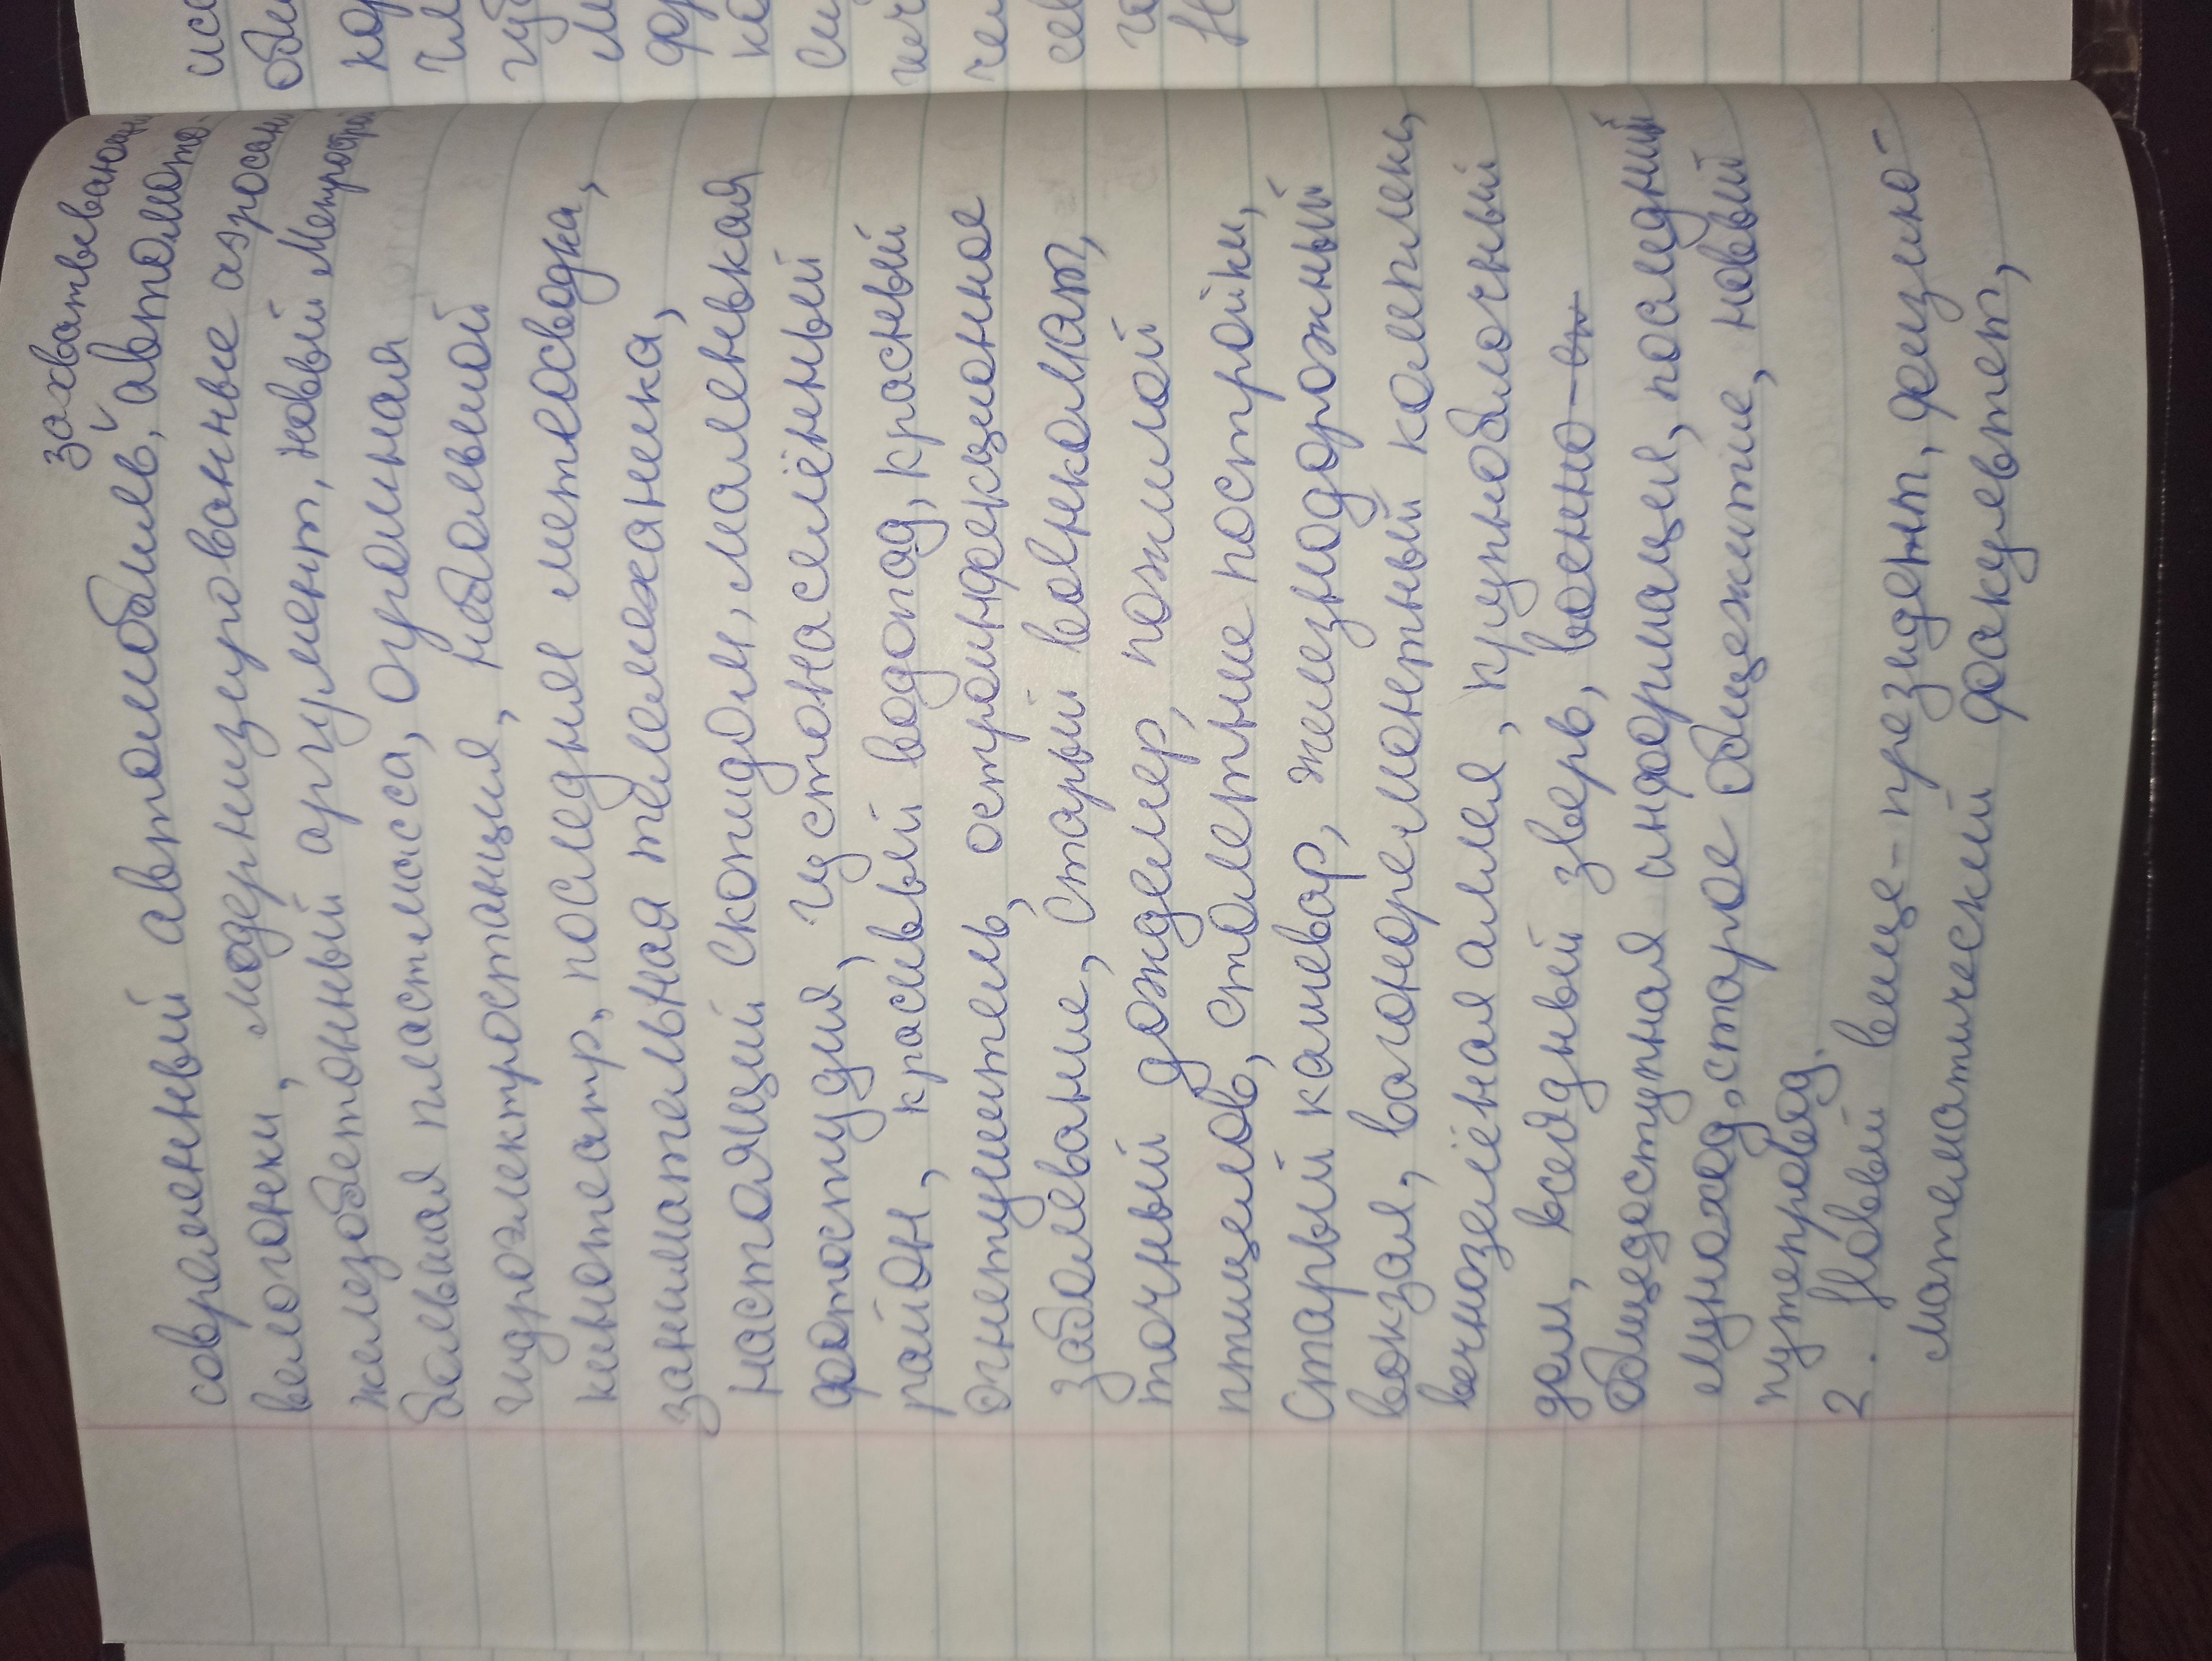 захватывающи
современный автомобиль, автомото-
велогонки, модернизированные аэросани
железобетонный аргумент, новый Метростро
большая пластмасса, огромная
гидроэлектростанция, небольшой
кинотеатр, последняя метеосводка,
занимательная телемеханика,
настоящий скопидом, маленькая
фотостудия, густонаселённый
район, красивый водопад, красный
огнетушитель, остроинфекционное
заболевание, старый военкомат,
точный дождемер, пожилой
птицелов, столетние постройки,
Старый кашевар, железнодорожный
вокзал, вагоноремонтный комплекс,
вечнозелёная аллея, крупноблочный
дом, всеядный зверь, военно-
общедоступная информация, последний
луноход, старое общежитие, новый
путепровод.
2. Новый вице-президент, физико-
математический факультет,